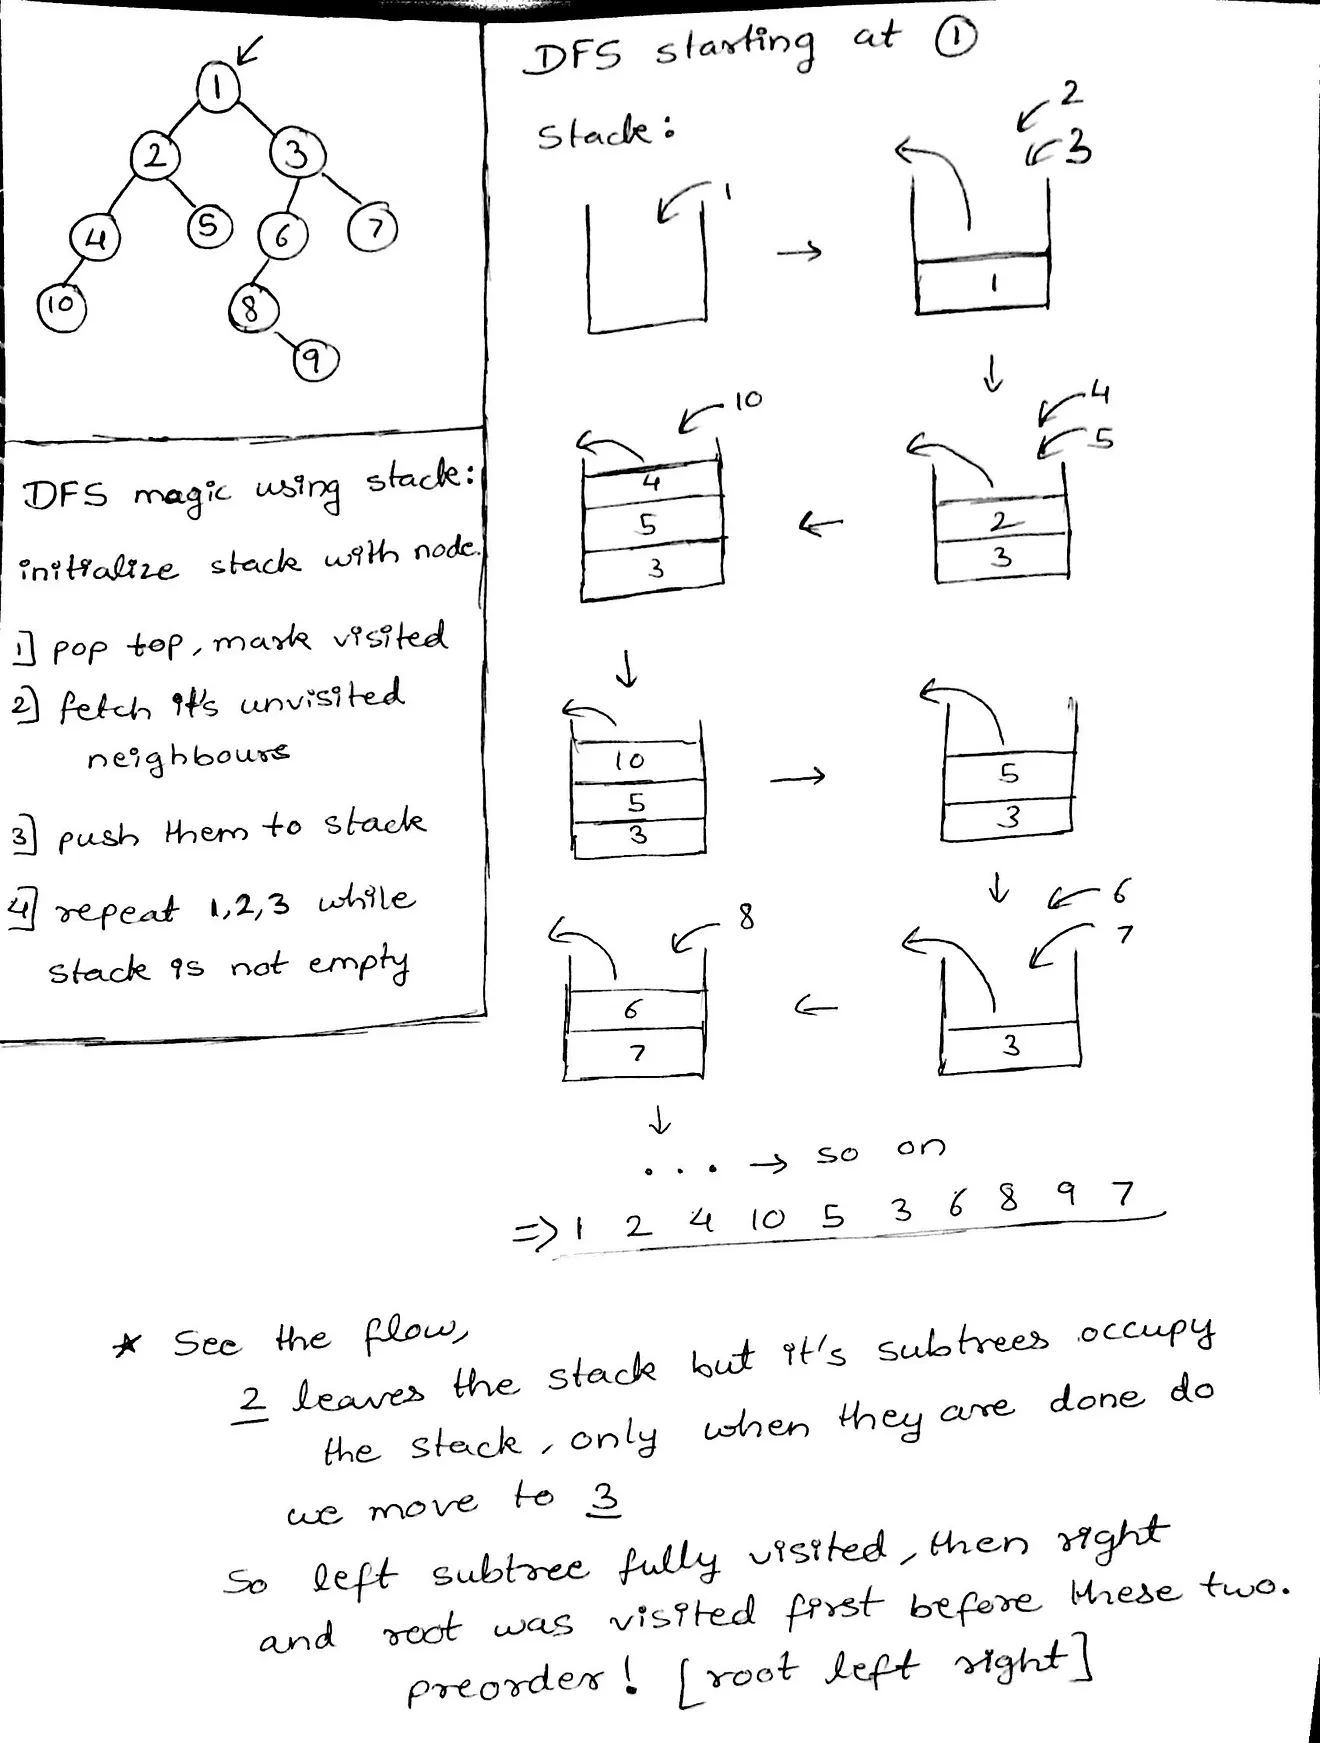 1
2 3
4 5 6 7
10 8
9
DFS magic using stack:
initialize stack with node.
1] pop top, mark visited
2] fetch it's unvisited
neighbours
3] push them to stack
4] repeat 1,2,3 while
stack is not empty
DFS starting at 1
stack:
1
→
2
3
1
↓
4
5
2
3
←
10
4
5
3
↓
10
5
3
→
5
3
↓
6
7
3
←
8
6
7
↓
... → so on
=> 1 2 4 10 5 3 6 8 9 7
* See the flow,
2 leaves the stack but it's subtrees occupy
the stack, only when they are done do
we move to 3
So left subtree fully visited, then right
and root was visited first before these two.
preorder! [root left right]